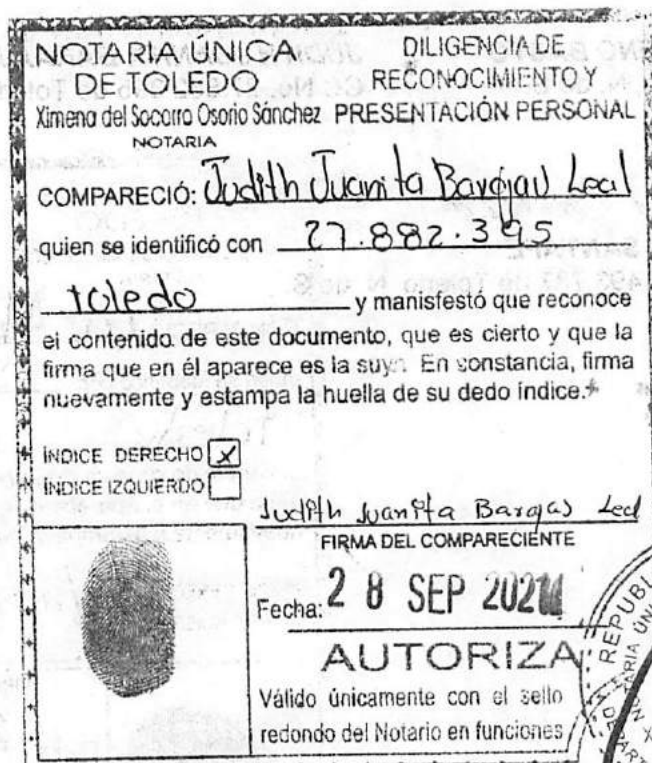 NOTARIA ÚNICA
DE TOLEDO
Ximena del Socorro Osorio Sánchez
NOTARIA
DILIGENCIA DE
RECONOCIMIENTO Y
PRESENTACIÓN PERSONAL
COMPARECIÓ: Judith Juanita Barajas Leal
quien se identificó con 27.882.395
toledo y manisfestó que reconoce
el contenido de este documento, que es cierto y que la
firma que en él aparece es la suya. En constancia, firma
nuevamente y estampa la huella de su dedo índice.
ÍNDICE DERECHO x
ÍNDICE IZQUIERDO
Judith Juanita Barajas Leal
FIRMA DEL COMPARECIENTE
Fecha: 28 SEP 2021
AUTORIZA
Válido únicamente con el sello
redondo del Notario en funciones